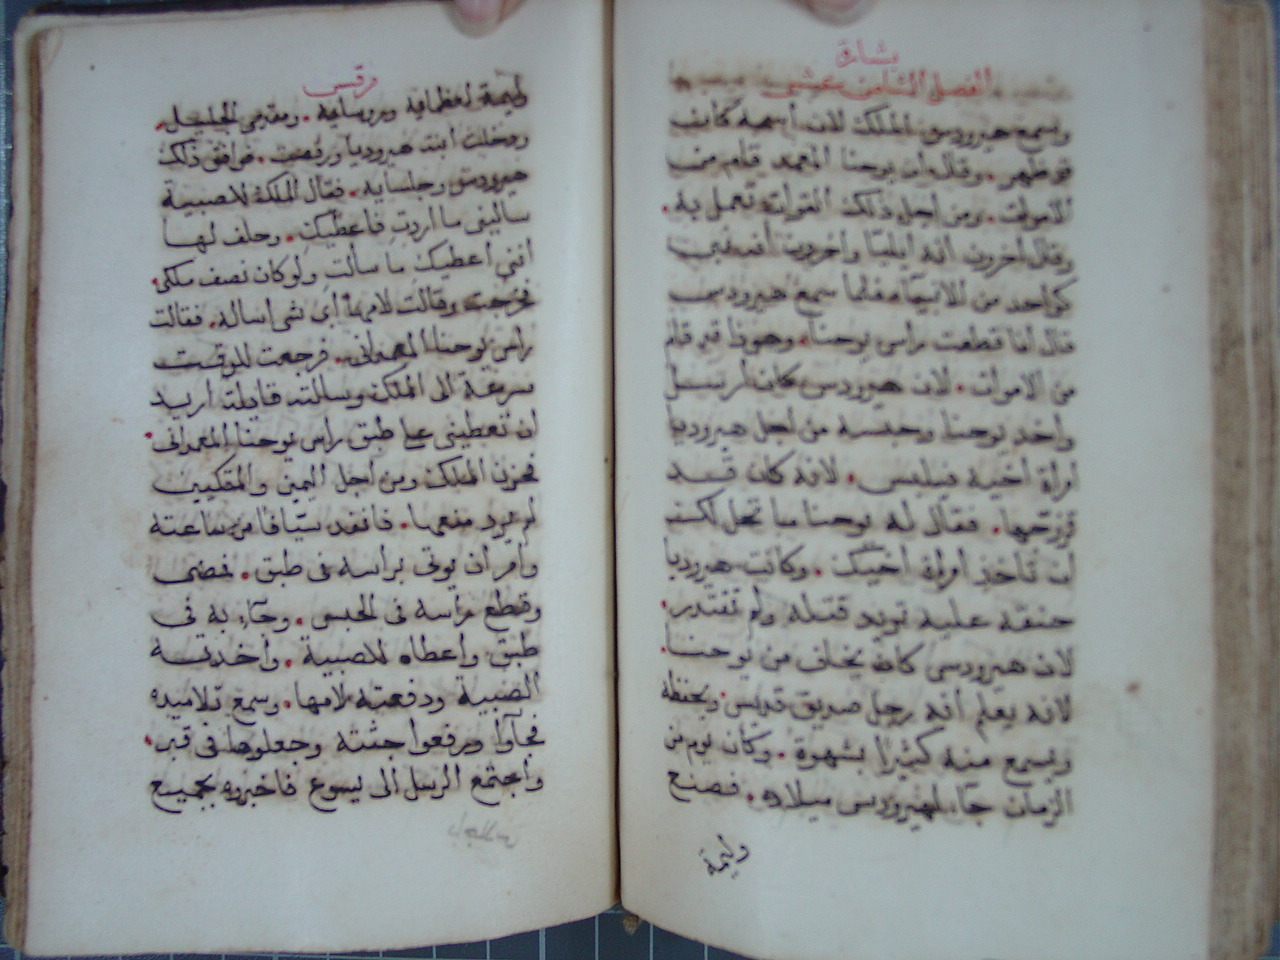 بشارة
الفصل الثامن عشر
وسمع هيرودس الملك لان اسمه كان
قد ظهر. وقال ان يوحنا المعمد قام من
الاموات. ومن اجل ذلك القوات تعمل به.
وقال اخرون انه ايليا واخرون انه نبي
كواحد من الانبياء فلما سمع هيرودس
قال انا قطعت راس يوحنا. وهوذا قد قام
من الاموات. لان هيرودس كان ارسل
واخد يوحنا وحبسه من اجل هيروديا
امراة اخيه فيلبس. لانه كان قد
تزوجها. فقال له يوحنا ما تحل لك
ان تاخذ امراة اخيك. وكانت هيروديا
حنقه عليه تريد قتله ولم تقتدر.
لان هيرودس كان يخاف من يوحنا.
لانه يعلم انه رجل صديق قديس ويحفظه
ويسمع منه كثيرا بشهوة. وكان يوم من
الزمان جاء لهيرودس ميلاده. فصنع
وليمة
مرقس
وليمة لعظمايه وروسايه. ومقدمي الجليل.
ودخلت ابنت هيروديا ورقصت. فوافق ذلك
هيرودس وجلسايه. فقال الملك للصبية
ساليني ما اردتِ فاعطيكِ. وحلف لها
انني اعطيك ما سألتِ ولو كان نصف ملكي.
فخرجت وقالت لامها اي شي اساله. فقالت
راس يوحنا المعمداني. فرجعت للوقت
بسرعة الى الملك وسالته قايلة اريد
ان تعطيني على طبق راس يوحنا المعمداني.
فحزن الملك ومن اجل اليمين والمتكيين
لم يرد منعها. فانفد سيّافا من ساعته
وامر ان يوتى براسه في طبق. فمضى
وقطع راسه في الحبس. وجاء به في
طبق واعطاه للصبية. واخدته
الصبية ودفعته لامها. وسمع تلاميده
فجآوا ورفعوا جثته وجعلوها في قبر.
واجتمع الرسل الى يسوع فاخبروه بجميع